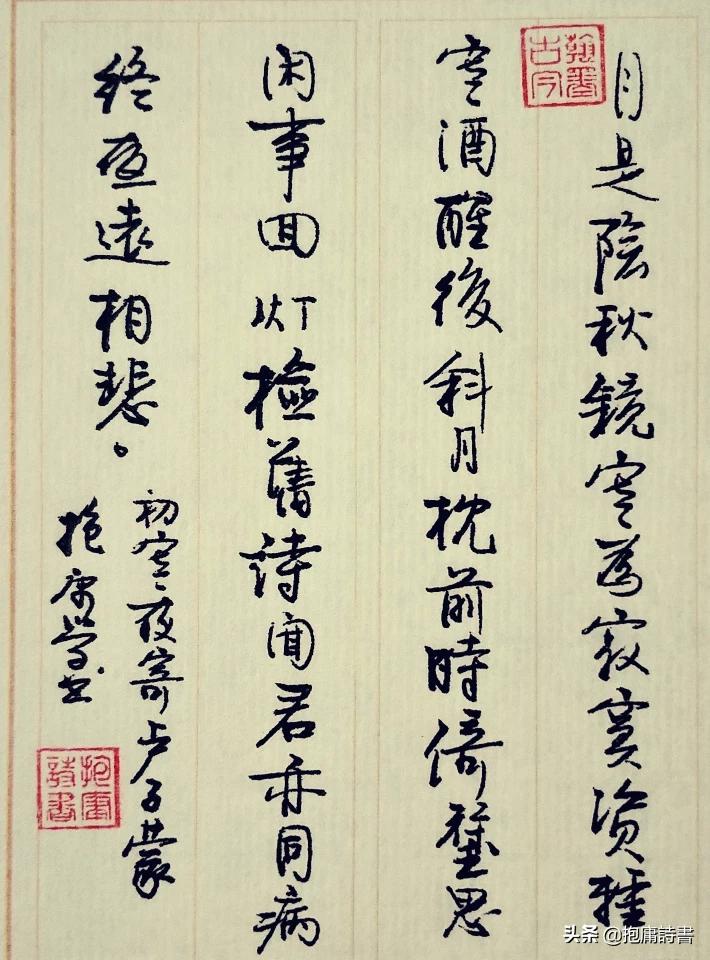 翰墨古今
月是陰秋鏡寒為寂寞资輕
寒酒醒後斜月枕前時倚壁思
闲事囬灯檢舊詩聞君亦同病
終夜遠相悲。
初寒夜寄卢子蒙
抱庸學书
抱庸詩書
头条 @抱庸詩書